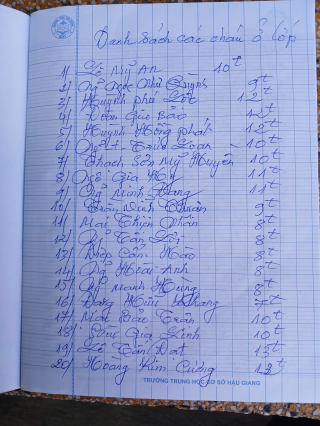 Danh sách các cháu ở lớp
1/ Lê Mỹ An 10t
2/ Ng̃ Ngọc Như Quỳnh 9t
3/ Huỳnh Phú Lộc 12t
4/ Đoàn Gia Bảo 12t
5/ Huỳnh Hồng Phát 12t
6/ Ng̃ Trúc Loan - 10t
7/ Thạch Sơn Mỹ Huyền 10t
8/ Ngô Gia Hy 11t
9/ Ng̃ Minh Hoàng 11t
10/ Trần Đình 9t
11/ Mai Thiện Nhân 8t
12/ Ng̃ Tấn Lợi 8t
13/ Diệp Cẩm Hào 8t
14/ Ng̃ Hoài Anh 8t
15/ Ng̃ Mạnh Hùng 8t
16/ Đặng Hữu Khang 7t
17/ Mai Bảo Trân 10t
18/ Gia Linh 10t
19/ Lê Tấn Đạt 15t
20/ Hoàng Kim Cương 13t
TRƯỜNG TRUNG HỌC CƠ SỞ HẬU GIANG